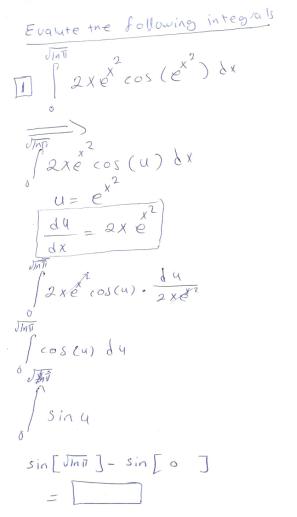 Evalute the following integrals
1 ∫₀^√lnπ 2xe^x² cos(e^x²) dx
⟹
∫₀^√lnπ 2xe^x² cos(u) dx
u = e^x²
du/dx = 2x e^x²
∫₀^√lnπ 2xe^x² cos(u) · du/2xe^x²
∫₀^√lnπ cos(u) du
∫₀^√lnπ sin u
sin[√lnπ] - sin[0]
=